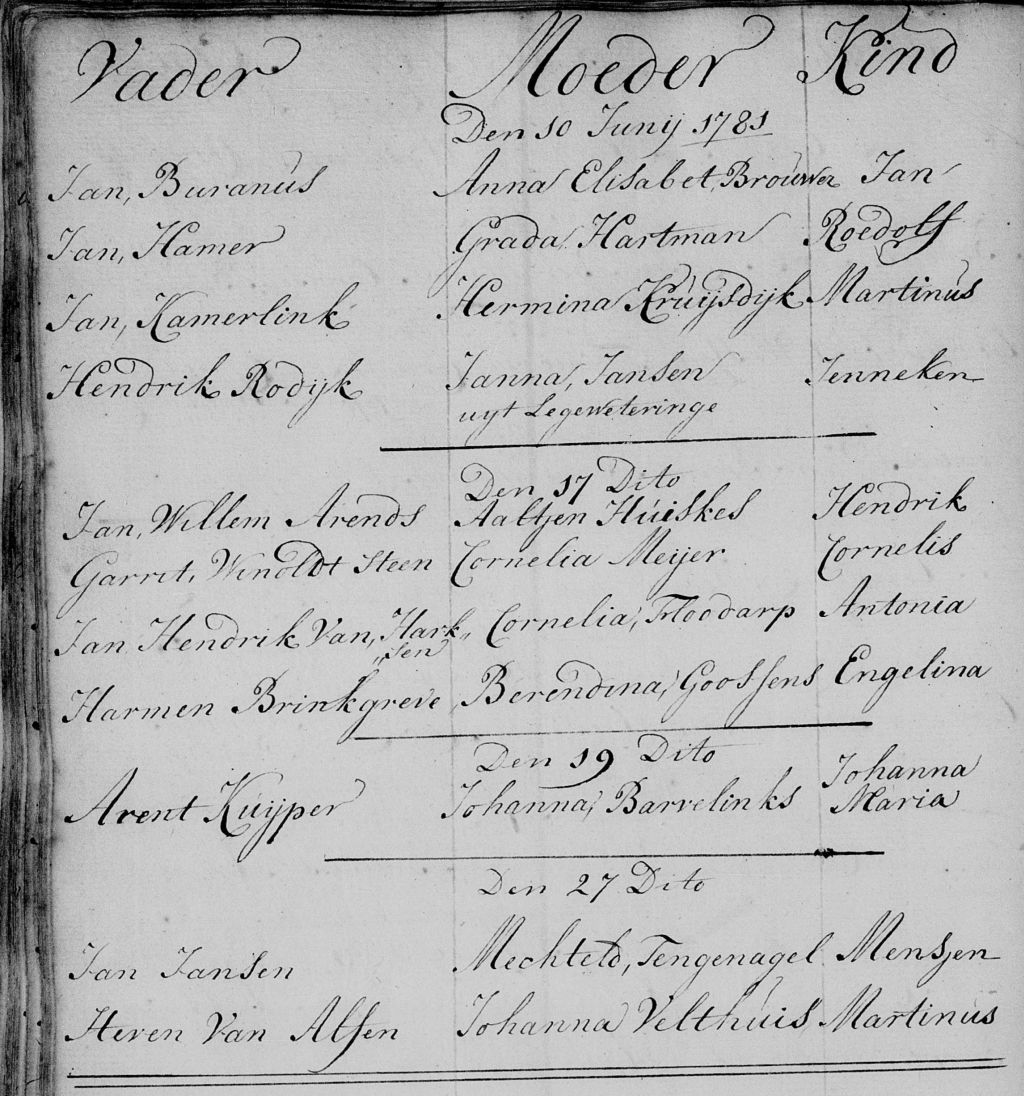 Vader Moeder Kind
Den 10 Junij 1781
Jan, Buranus Anna Elisabet, Brouwer Jan
Jan, Hamer Grada, Hartman Roedolf
Jan, Kamerlink Hermina Kruijsdijk Martinus
Hendrik Rodijk Janna, Jansen Jenneken
uyt Legeweteringe
Den 17 Dito
Jan, Willem Arends Aaltjen Huiskes Hendrik
Garrit, Winoldt Steen Cornelia Meijer Cornelis
Jan Hendrik Van, Hark„ Cornelia, Floodarp Antonia
„sen
Harmen Brinkgreve Berendina, Goossens Engelina
Den 19 Dito
Johanna
Arent Kuijper Johanna, Barvelinks Maria
Den 27 Dito
Jan Jansen Mechteld, Tengenagel Mensjen
Heven Van Alsen Johanna Velthuis Martinus